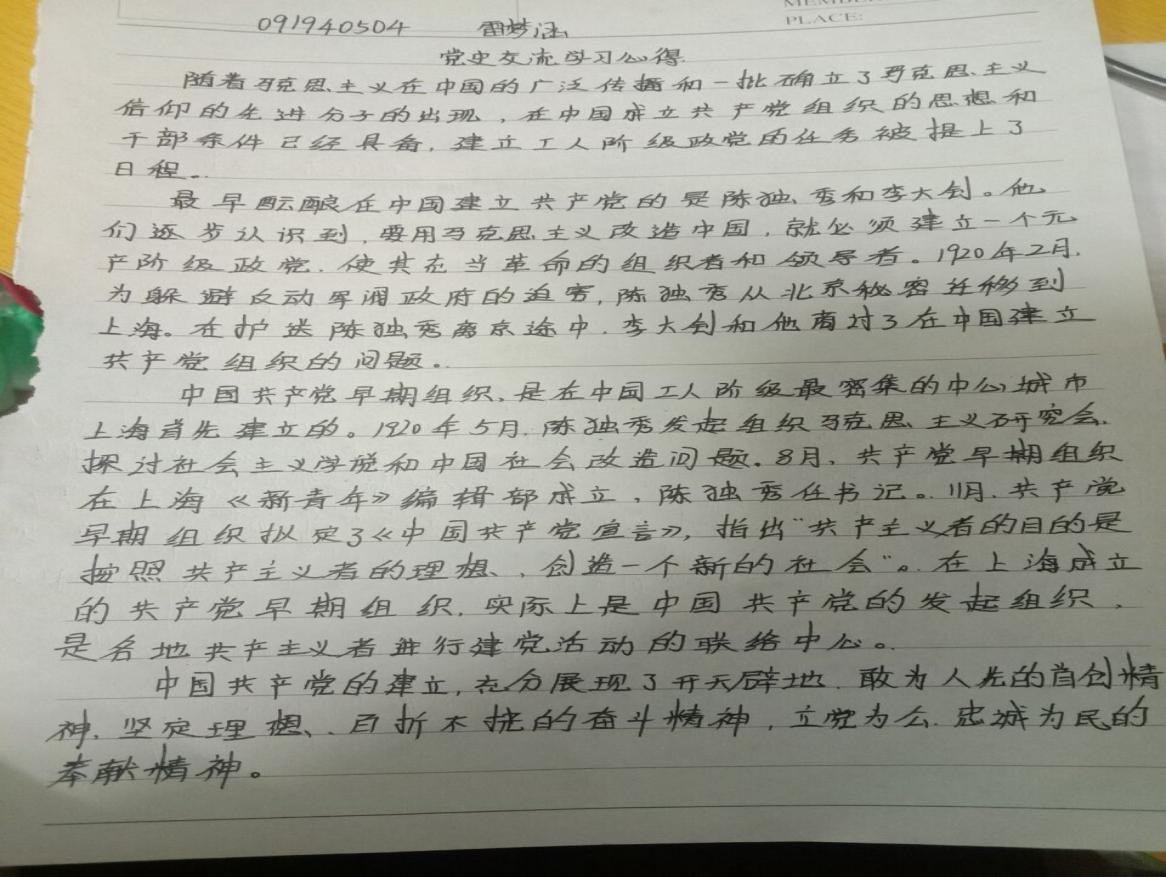 PLACE:
091940504 雷梦涵
党史交流学习心得
随着马克思主义在中国的广泛传播和一批确立了马克思主义
信仰的先进分子的出现，在中国成立共产党组织的思想和
干部条件已经具备，建立工人阶级政党的任务被提上了
日程。
最早酝酿在中国建立共产党的是陈独秀和李大钊。他
们逐步认识到，要用马克思主义改造中国，就必须建立一个无
产阶级政党，使其充当革命的组织者和领导者。1920年2月，
为躲避反动军阀政府的迫害，陈独秀从北京秘密迁移到
上海。在护送陈独秀离京途中，李大钊和他商讨了在中国建立
共产党组织的问题。
中国共产党早期组织，是在中国工人阶级最密集的中心城市
上海首先建立的。1920年5月，陈独秀发起组织马克思主义研究会，
探讨社会主义学说和中国社会改造问题。8月，共产党早期组织
在上海《新青年》编辑部成立，陈独秀任书记。11月，共产党
早期组织拟定了《中国共产党宣言》，指出“共产主义者的目的是
按照共产主义者的理想，创造一个新的社会”。在上海成立
的共产党早期组织，实际上是中国共产党的发起组织，
是各地共产主义者进行建党活动的联络中心。
中国共产党的建立，充分展现了开天辟地，敢为人先的首创精
神，坚定理想、百折不挠的奋斗精神，立党为公，忠诚为民的
奉献精神。